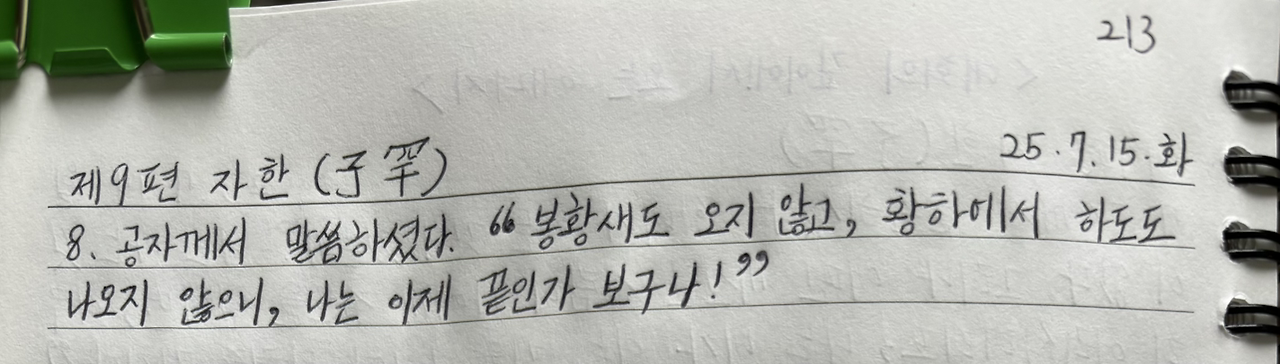 213
25.7.15.화
제9편 자한(子罕)
8. 공자께서 말씀하셨다. "봉황새도 오지 않고, 황하에서 하도도
나오지 않으니, 나는 이제 끝인가 보구나!"